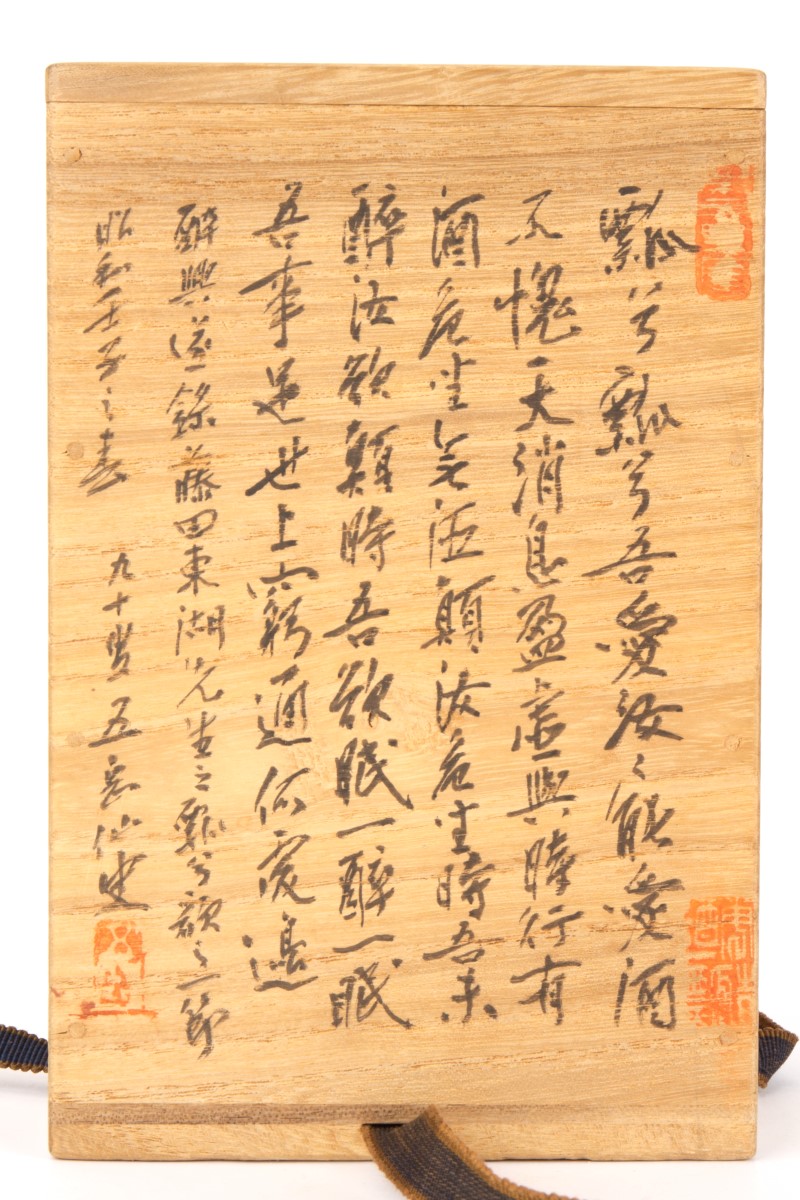 瓢兮瓢兮吾愛汝々能愛酒
不愧天消息盈虚與時行有
酒危坐無酒顛汝危坐時吾未
醉汝欲顛時吾欲眠一醉一眠
吾事足世上窮通何處邊
醉興逆錄藤田東湖先生之瓢兮歌之一節
昭和壬子之春 九十叟 五岳仙史